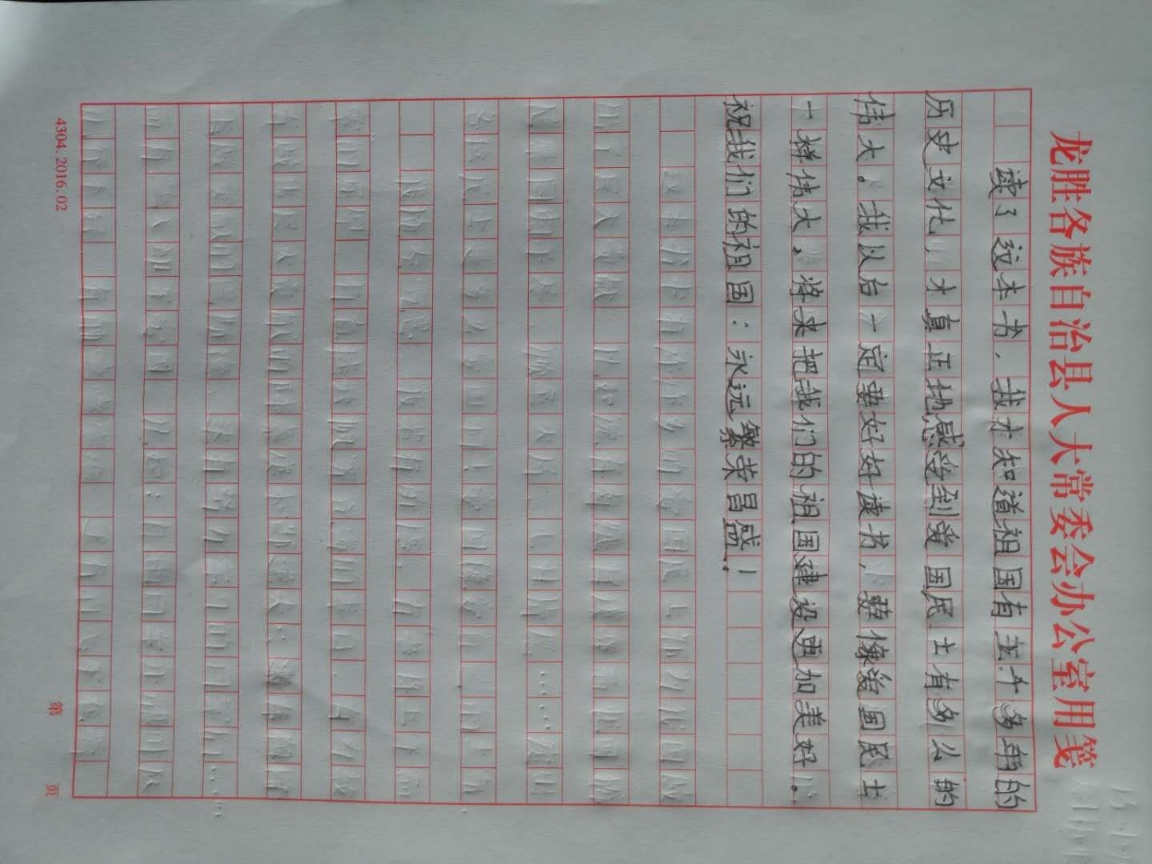 龙胜各族自治县人大常委会办公室用笺
读了这本书，我才知道祖国有五千多年的
历史文化，才真正地感受到爱国民士有多么的
伟大。我以后一定要好好读书，要像爱国民士
一样伟大。将来把我们的祖国建设更加美好。
祝我们的祖国：永远繁荣昌盛！
4304.2016.02
第 页